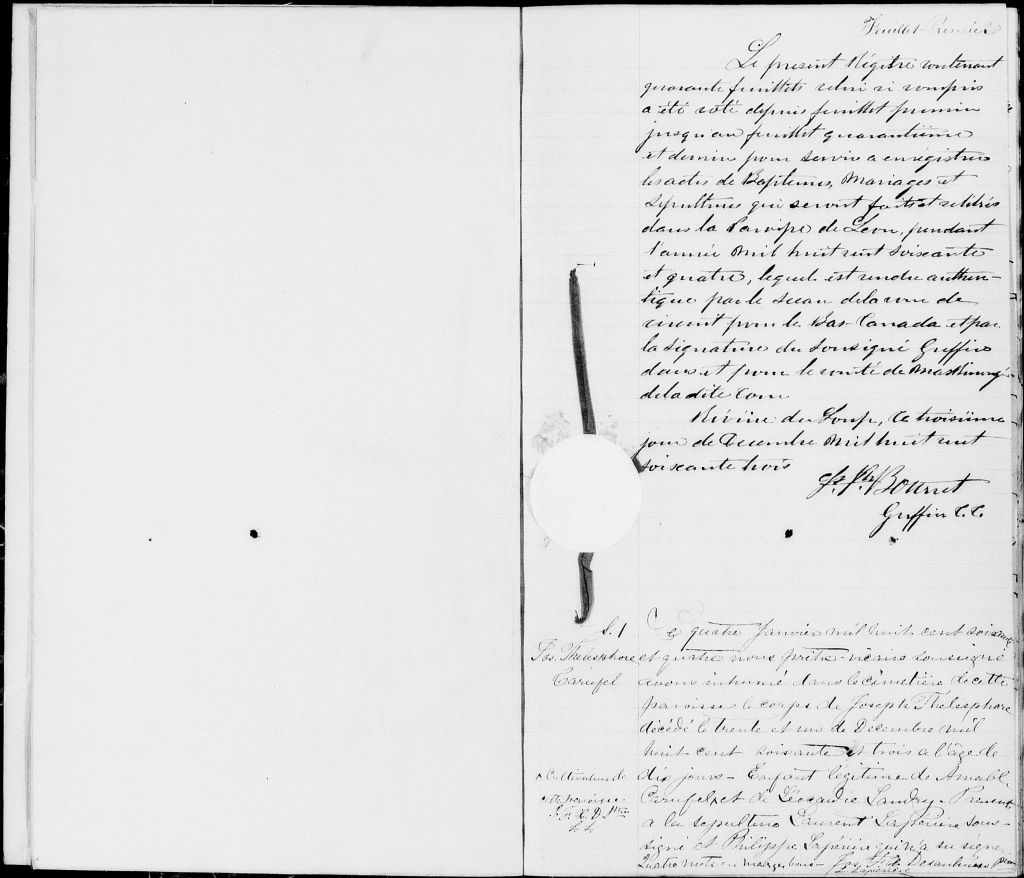 Feuillet Premier
Le present Régitre contenant
quarante feuillets celui ci compris
a été coté depuis feuillet premier
jusqu'au feuillet quarantième
et dernier pour servir a enrégistrer
les actes de Baptemes, Mariages et
sepultures qui seront faits et célébrés
dans la Paroisse de Léon, pendant
l'année Mil huit cent soixante
et quatre, lequel est rendu authen-
tique par le sceau de la cour de
circuit pour le Bas-Canada et par
la signature du soussigné Greffier
dans et pour le comté de Maskinongé
de la dite Cour
Rivière du Loup, Ce troisième
jour de Decembre Mil huit cent
soixante trois
Bourret
Greffier C.C.
S. 1
Jos. Thelesphore
Carufel
Ce quatre Janvier mil huit cent soixante
et quatre nous prêtre-vicaire soussigné
avons inhumé dans le cimetière de cette
paroisse le corps de Joseph Thelesphore
décédé le trente et un de Decembre mil
huit cent soixante et trois a l'âge de
dix jours - Enfant légitime de Amable
Carufel et de Léocadie Landry. Présent
a la sepulture Laurent Laferrière sous-
signé et Philippe Laferrière qui n'a su signer.
Quatre mots en marge bons - Desaulniers
Cultivateur de
cette paroisse